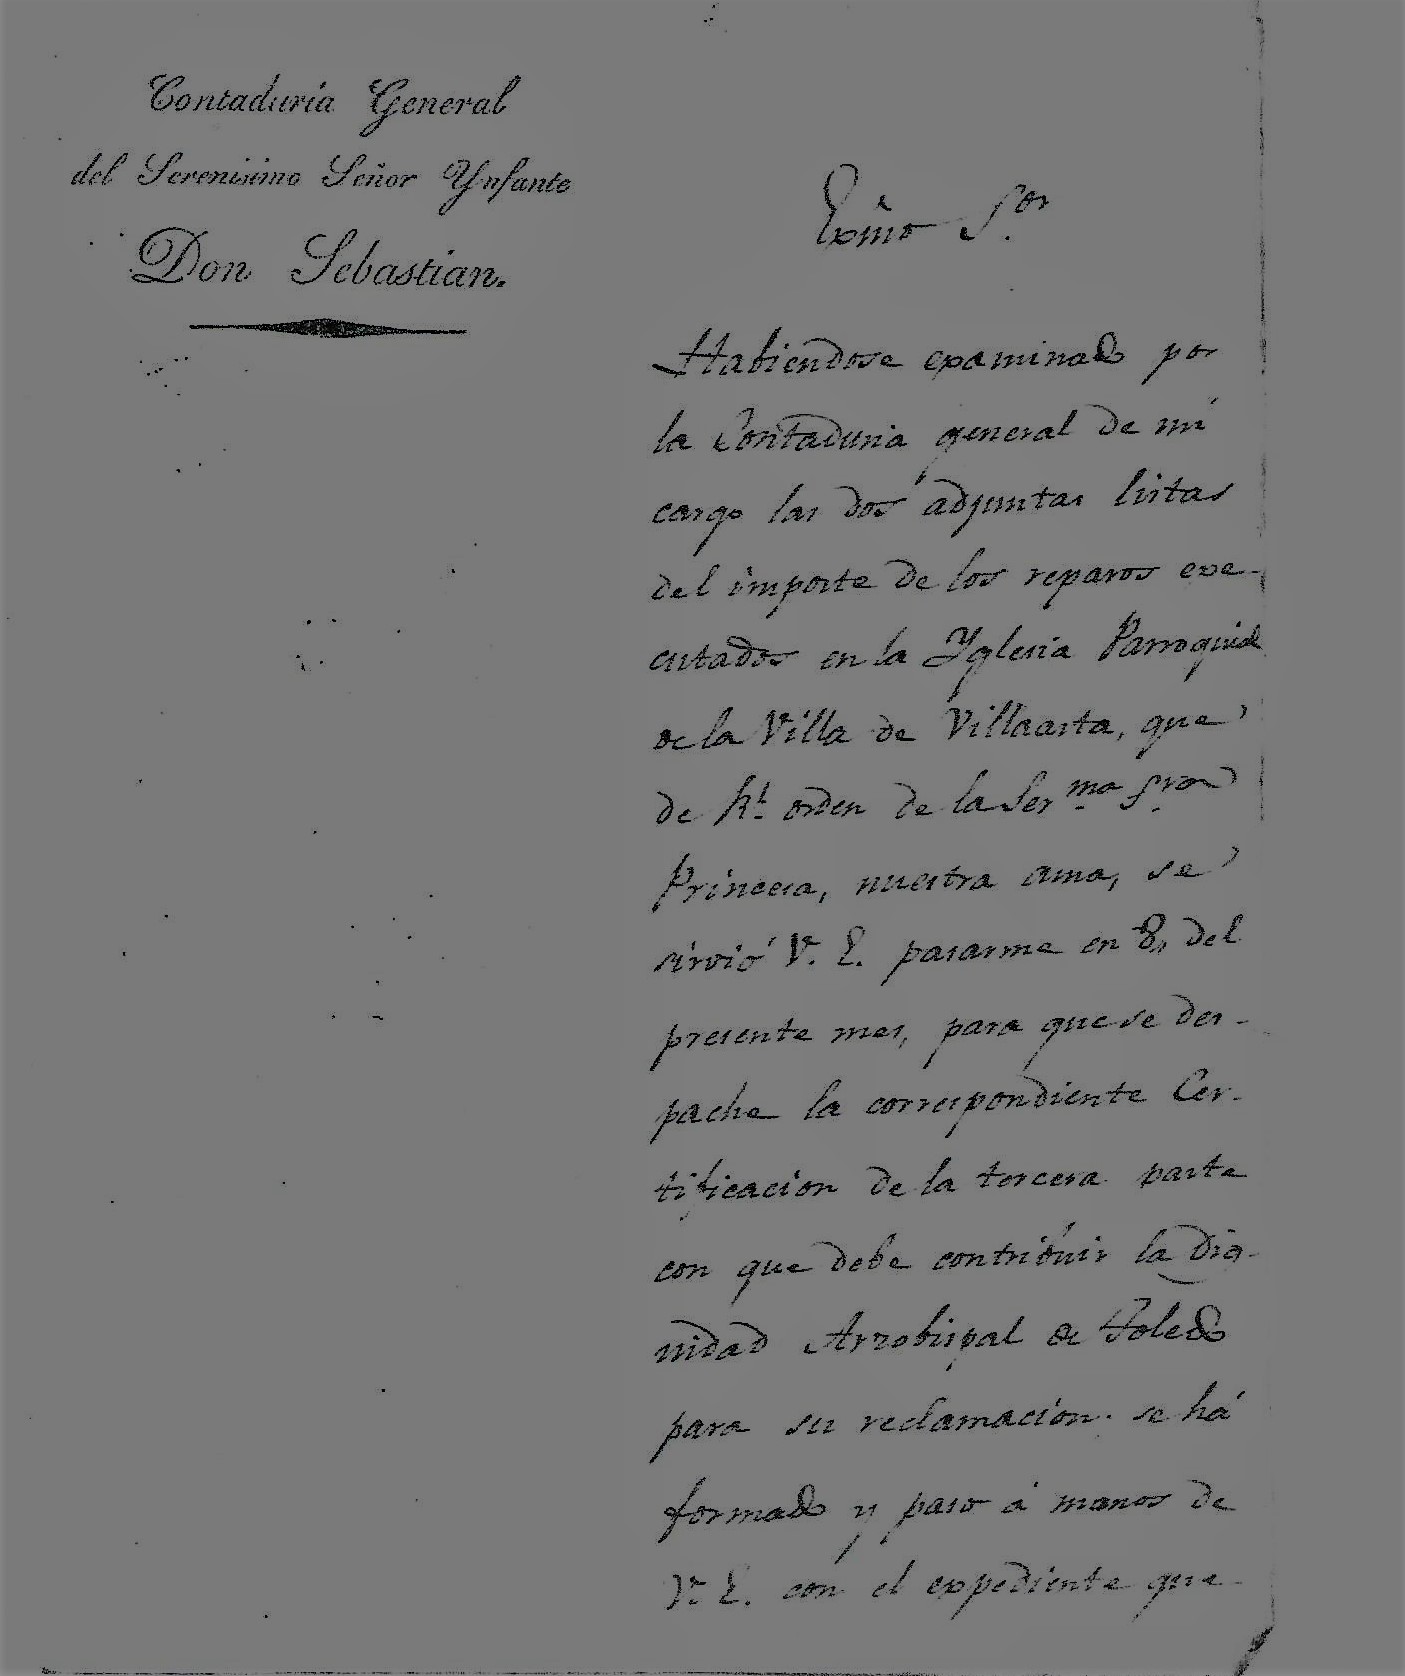 Contaduría General
del Serenisimo Señor Ynfante
Don Sebastian.
Exmo Sor
Habiendose examinado por
la Contaduria general de mi
cargo las dos adjuntas listas
del importe de los reparos exe-
cutados en la Yglesia Parroquial
de la Villa de Villaarta, que
de Rl. orden de la Serma Sra
Princesa, nuestra ama, se
sirvió V. E. pasarme en 8, del
presente mes, para que se des-
pache la correspondiente Cer-
tificacion de la tercera parte
con que debe contribuir la Dig-
nidad Arzobispal de Toledo
para su reclamacion. se há
formado y paso á manos de
V. E. con el expediente que